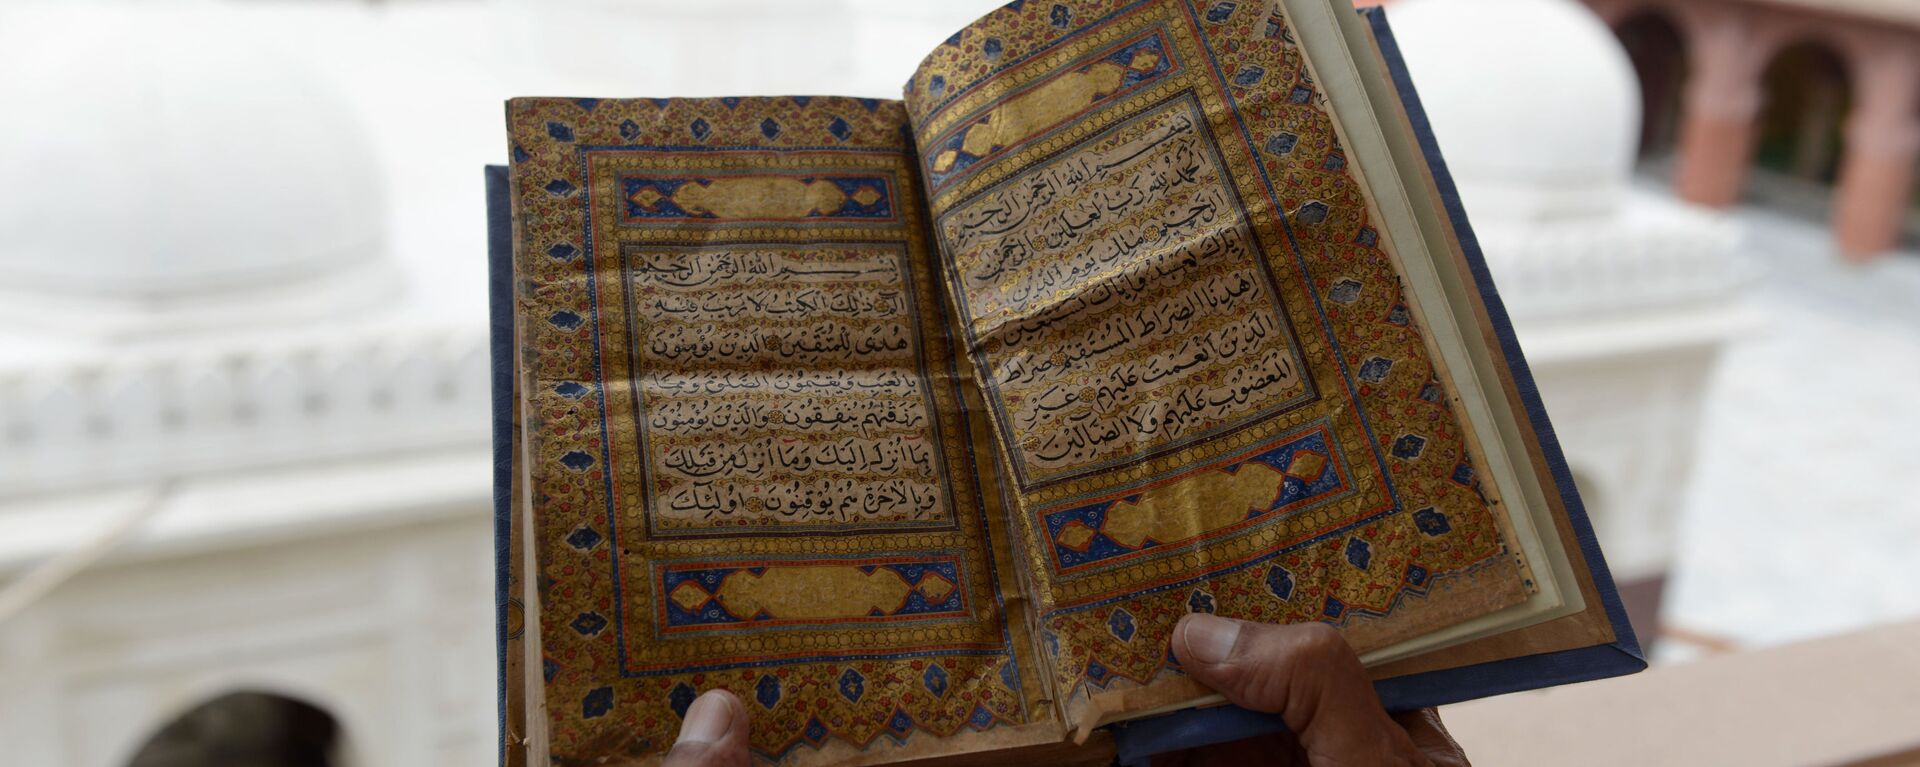 بسم الله الرحمن الرحيم
الحمد لله رب العلمين الرحمن
الرحيم ملك يوم الدين
إياك نعبد وإياك نستعين
اهدنا الصراط المستقيم صراط
الذين أنعمت عليهم غير
المغضوب عليهم ولا الضالين
بسم الله الرحمن الرحيم
الم ذلك الكتب لا ريب فيه
هدى للمتقين الذين يؤمنون
بالغيب ويقيمون الصلوة ومما
رزقنهم ينفقون والذين يؤمنون
بما أنزل إليك وما أنزل من قبلك
وبالآخرة هم يوقنون أولئك